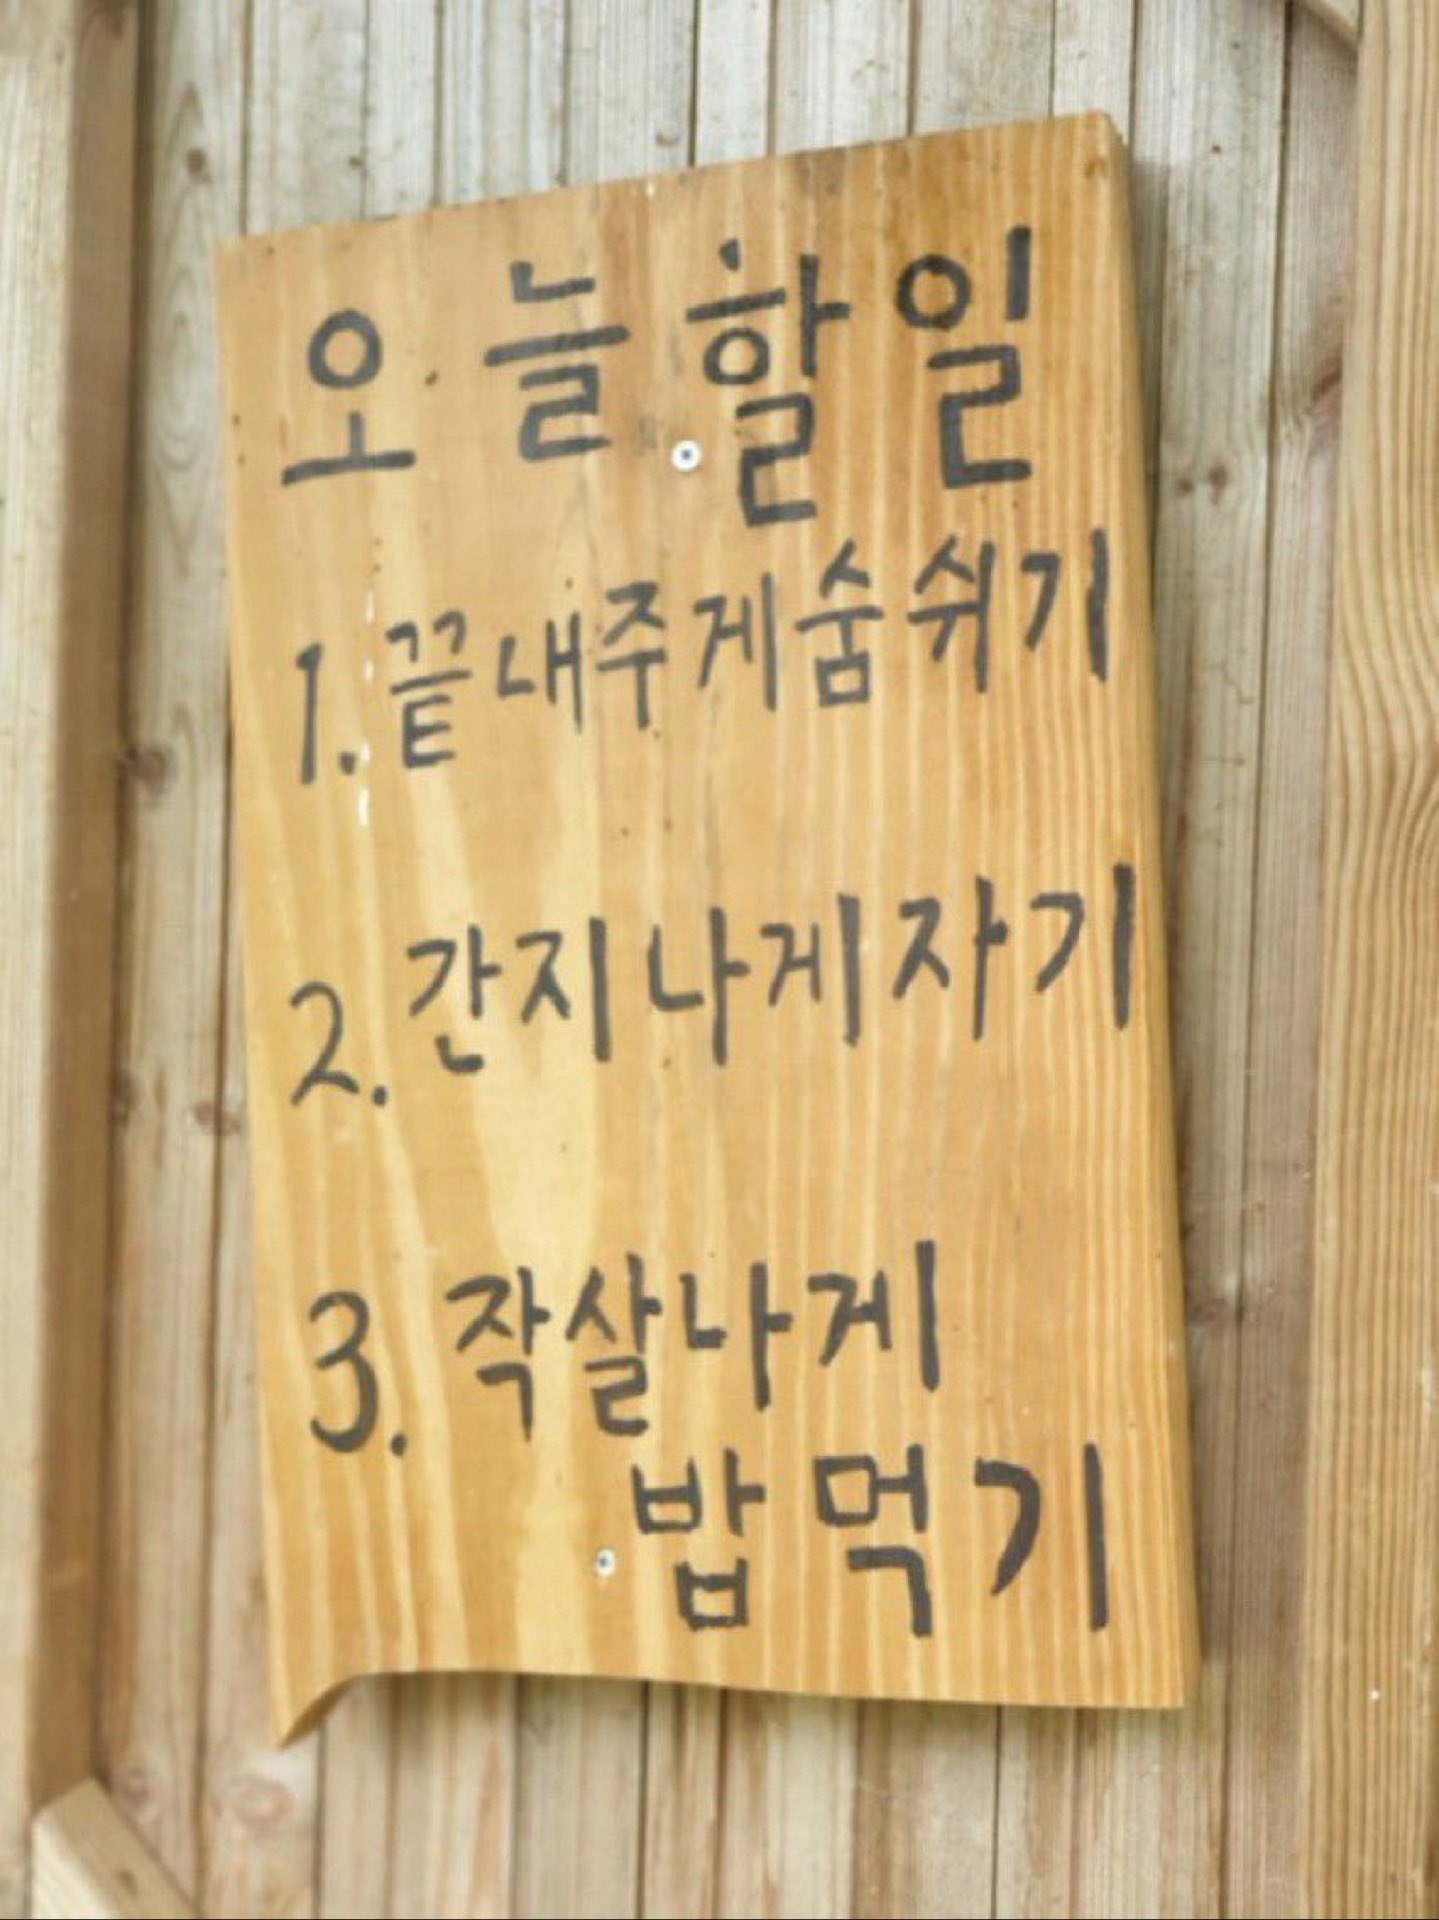 오늘 할 일
1. 끝내주게 숨쉬기
2. 간지나게 자기
3. 작살나게
밥 먹기